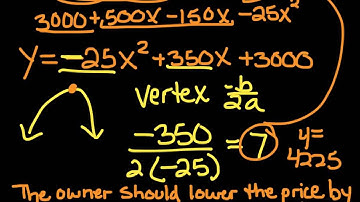 3000+500x-150x,-25x²
Y=-25x²+350x+3000
vertex -b/2a
-350/2(-25) = 7
y=
4225
The owner should lower the price by